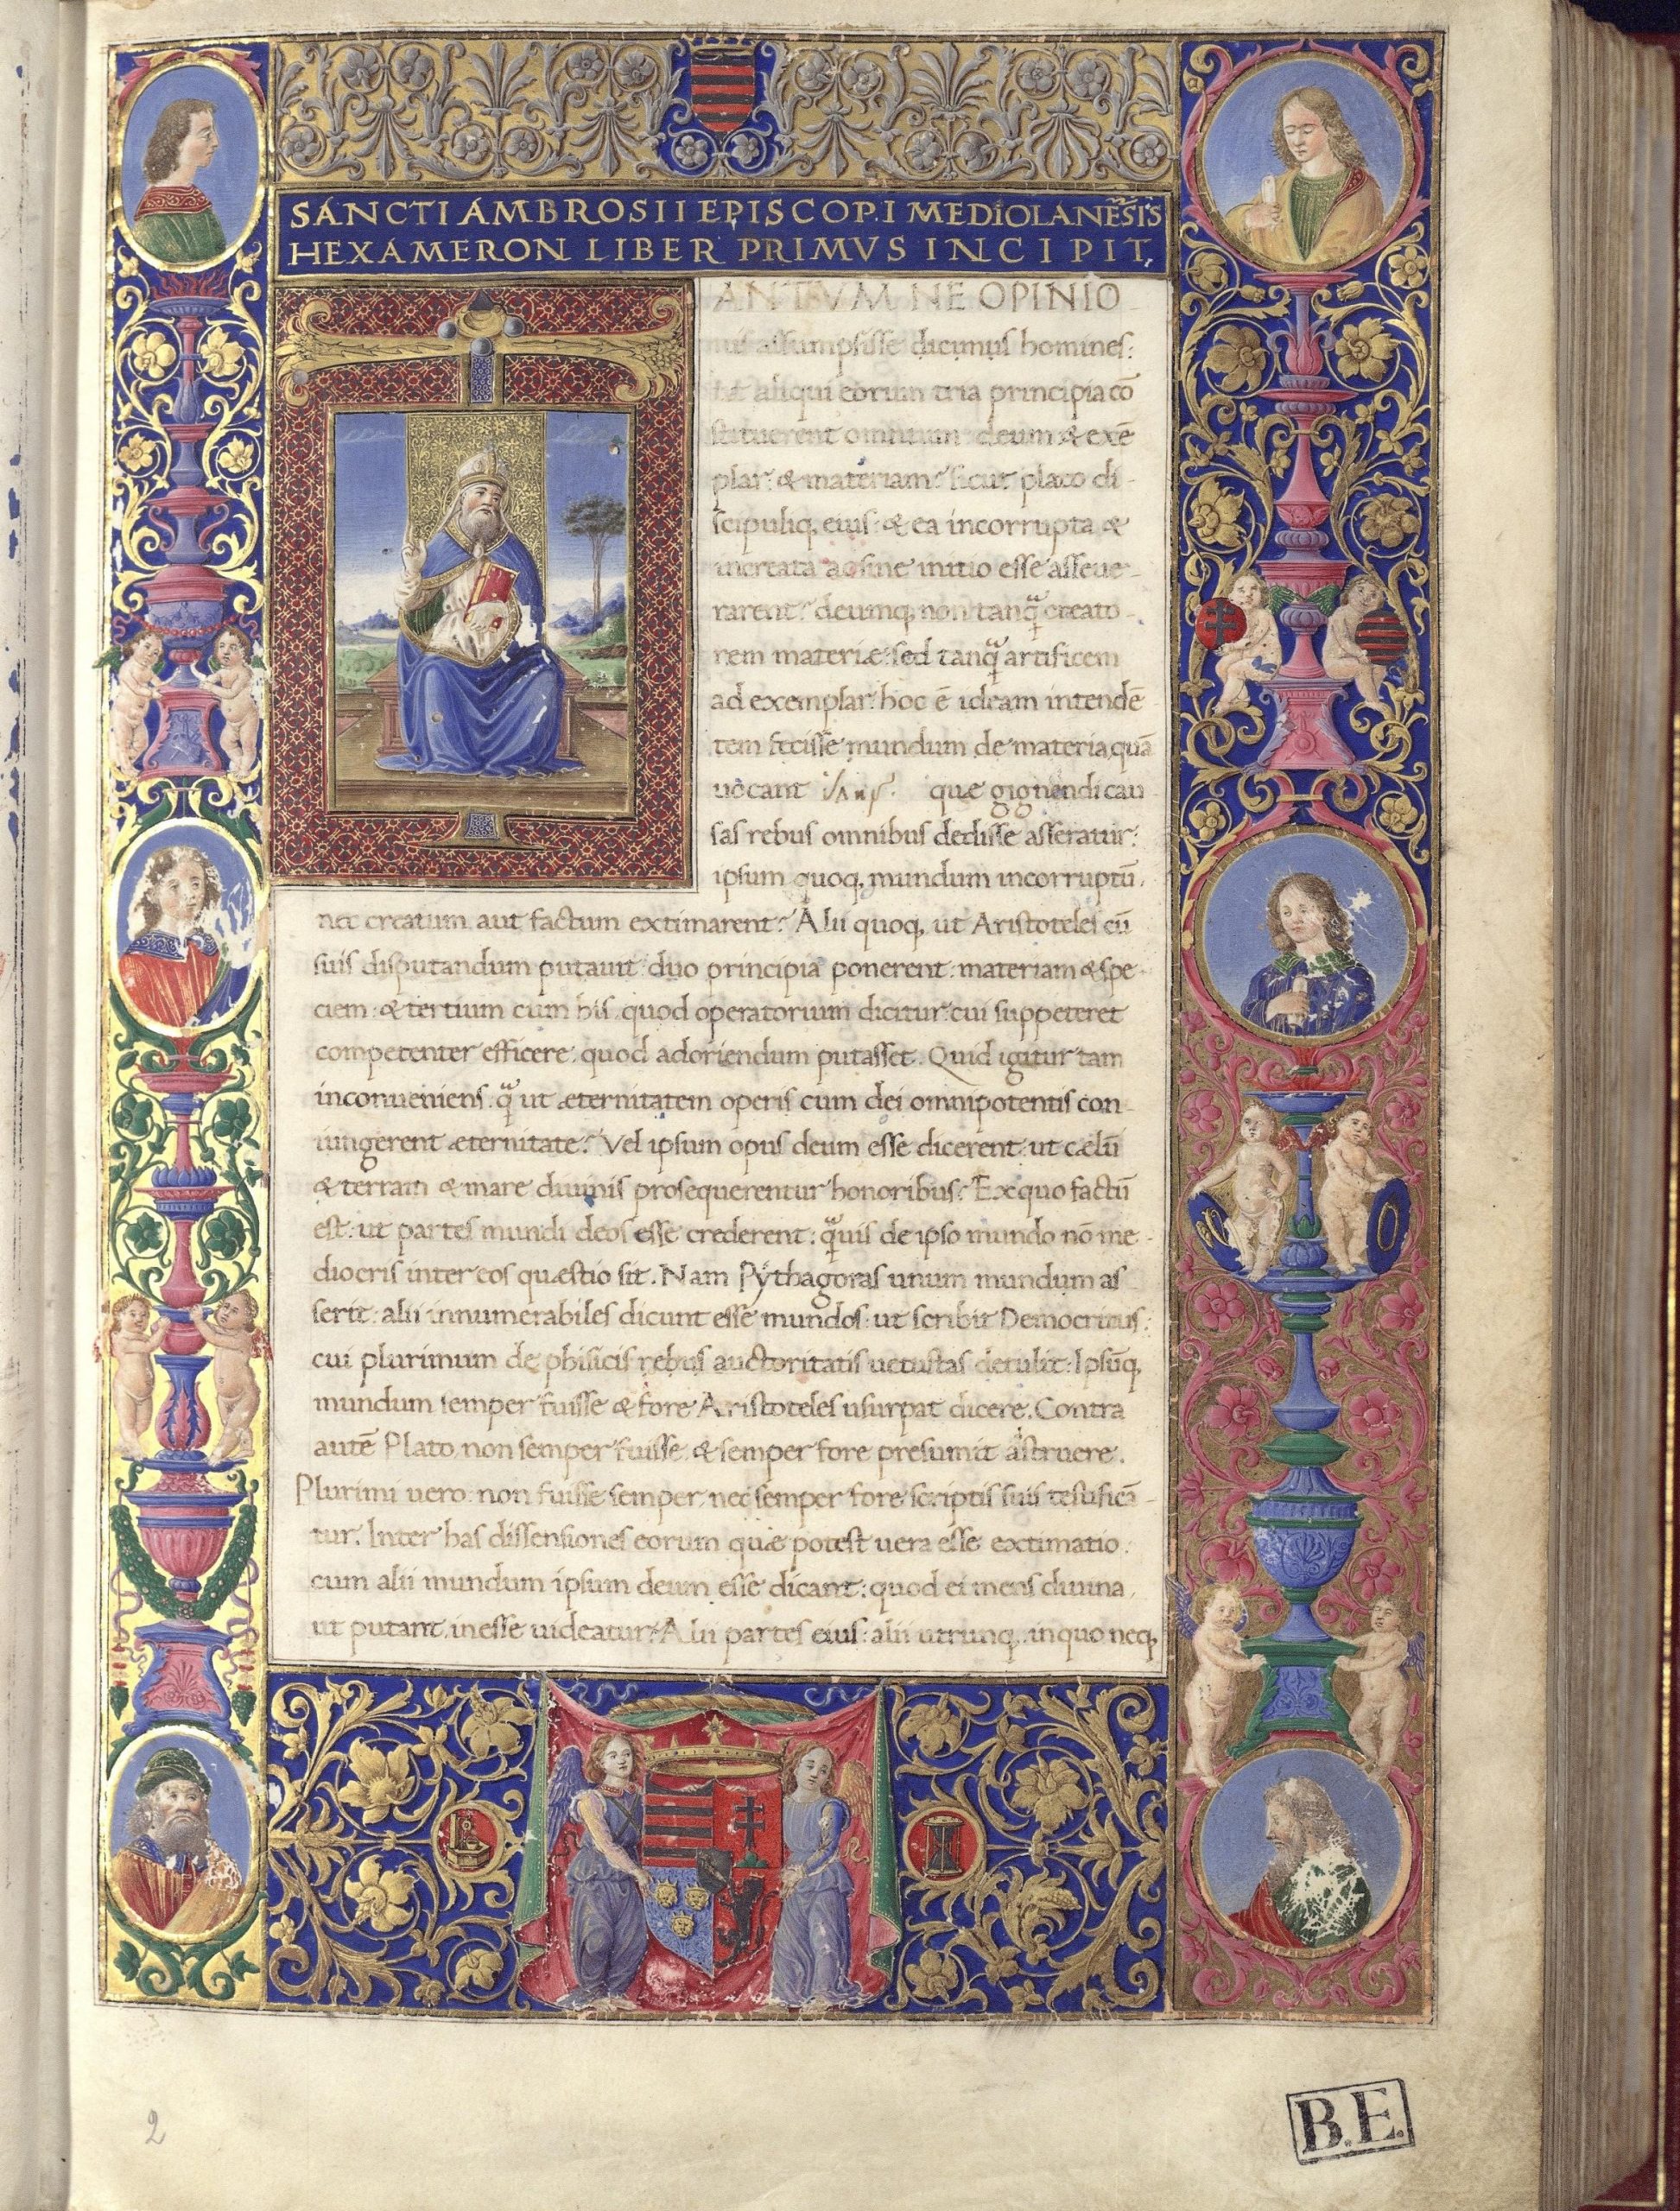 SANCTI AMBROSII EPISCOPI MEDIOLANĒSIS
HEXAMERON LIBER PRIMVS INCIPIT,
ANTVM NE OPINIO
nis assumpsisse dicimus homines:
ut aliqui eorum tria principia cō
stituerent omnium: deum & exē
plar: & materiam: sicut plato di-
scipuliq, eius: & ea incorrupta &
increata ac sine initio esse asseue-
rarent: deumq, non tanq̃ creato-
rem materiæ: sed tanq̃ artificem
ad exemplar: hoc ē ideam intendē
tem fecisse mundum de materia, quā
uocant quæ gignendi cau
sas rebus omnibus dedisse asseratur:
ipsum quoq, mundum incorruptū,
nec creatum aut factum extimarent: Alii quoq, ut Aristoteles cū
suis disputandum putauit duo principia ponerent: materiam & spe-
ciem: & tertium cum his quod operatorium dicitur: cui suppeteret
competenter efficere: quod adoriendum putasset. Quid igitur tam
inconueniens: q̃ ut æternitatem operis cum dei omnipotentis con-
iungerent æternitate: Vel ipsum opus deum esse dicerent: ut cælū
& terram & mare diuinis prosequerentur honoribus: Ex quo factū
est: ut partes mundi deos esse crederent: q̃uis de ipso mundo nō me-
diocris inter eos quæstio sit. Nam Pythagoras unum mundum as
serit: alii innumerabiles dicunt esse mundos: ut scribit Democritus:
cui plurimum de phisicis rebus auctoritatis uetustas detulit: Ipsūq,
mundum semper fuisse & fore Aristoteles usurpat dicere. Contra
autē Plato non semper fuisse & semper fore presumit astruere.
Plurimi uero non fuisse semper, nec semper fore scriptis suis testificā-
tur. Inter has dissensiones eorum quæ potest uera esse extimatio:
cum alii mundum ipsum deum esse dicant: quod ei mens diuina,
ut putant, inesse uideatur: Alii partes eius: alii utrunq, in quo neq,
2
B.E.